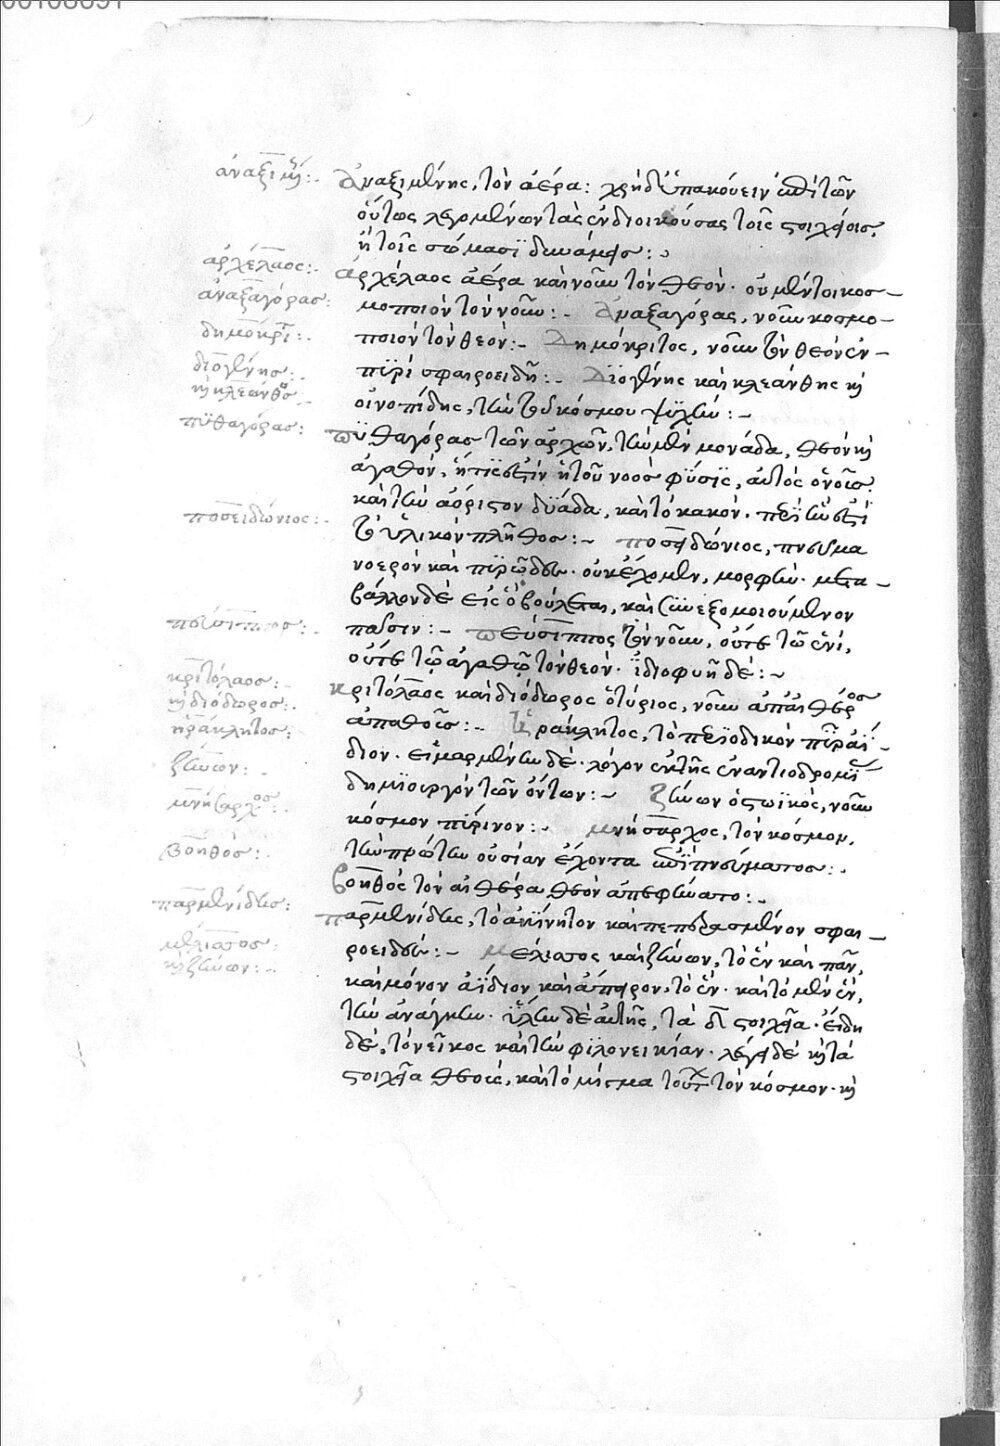 ἀναξιμέν:
Ἀναξιμένης, τὸν ἀέρα: χρὴ δ' ὑπακούειν ἐπὶ τῶν
οὕτως λεγομένων τὰς ἐνδιοικούσας τοῖς στοιχείοις,
ἢ τοῖς σώμασϊ δυνάμεις:
ἀρχέλαος:
Ἀρχέλαος ἀέρα καὶ νοῦν τὸν θεόν· οὐ μέντοι κοσ-
ἀναξαγόρας:
μοποιὸν τὸν νοῦν:- Ἀναξαγόρας, νοῦν κοσμο-
δημόκριτ:
ποιὸν τὸν θεόν:- Δημόκριτος, νοῦν τὸν θεὸν ἐν-
διογένης:
πϋρὶ σφαιροειδῆ:- Διογένης καὶ κλεάνθης κὴ
κὴ κλεάνθος
οἰνοπίδης, τὴν τοῦ κόσμου ψϋχήν:-
πϋθαγόρας:
Πϋθαγόρας τῶν ἀρχῶν, τὴν μὲν μονάδα, θεὸν κὴ
ἀγαθόν, ἥτις ἐστὶν ἡ τοῦ νοὸς φϋσϊς, αὐτὸς ὁ νοῦς.
καὶ τὴν ἀόριστον δϋάδα, καὶ τὸ κακόν. περὶ ἥν ἐστϊ
ποσειδώνιος:
τὸ ὑλικὸν πλῆθος:- Ποσειδώνιος, πνεῦμα
νοερὸν καὶ πϋρῶδες. οὐκ ἔχον μὲν, μορφήν. μετα-
βάλλον δὲ εἰς ὃ βούλεται, καὶ συνεξομοιούμενον
πεύσιππος:
πᾶσιν:- πεύσιππος τὸν νοῦν, οὔτε τῶ ἑνὶ,
οὔτε τῶ ἀγαθῶ τὸν θεόν. ἰδιοφυῆ δέ:-
κριτόλαος:
Κριτόλαος καὶ διόδωρος ὁ τύριος, νοῦν ἀπ' αἰθέρος
κὴ διόδωρος:
ἡράκλητος:
ἀπαθοῦς:- Ἡράκλητος, τὸ περϊοδικὸν πῦρ ἀΐ-
διον. εἱμαρμένην δὲ, λόγον ἐκ τῆς ἐναντιοδρομί
ζήνων:
δημϊουργὸν τῶν ὄντων:- Ζήνων ὁ στωϊκὸς, νοῦν
μνήσαρχος:
κόσμον πύρινον:- Μνήσαρχος, τὸν κόσμον,
βόηθος:
τὴν πρώτην οὐσίαν ἔχοντα ἐπὶ πνεύματος:
Βοηθὸς τὸν αἰθέρα θεὸν ἀπεφήνατο:
παρμενίδης:
Παρμενίδης, τὸ ἀκϊνητον καὶ πεπερασμένον σφαι-
μέλισσος:
ροειδές:- Μέλισσος καὶ ζήνων, τὸ ἓν καὶ πᾶν,
κὴ ζήνων:
καὶ μόνον ἀΐδιον καὶ ἄπειρον, τὸ ἕν. καὶ τὸ μὲν ἓν,
τὴν ἀνάγκην. ὕλην δὲ αὐτῆς, τὰ δ στοιχεῖα. εἴδη
δὲ, τὸ νεῖκος καὶ τὴν φϊλονεικίαν. λέγει δὲ κὴ τὰ
στοιχεῖα θεοὺς, καὶ τὸ μίγμα τούτων τὸν κόσμον. κὴ